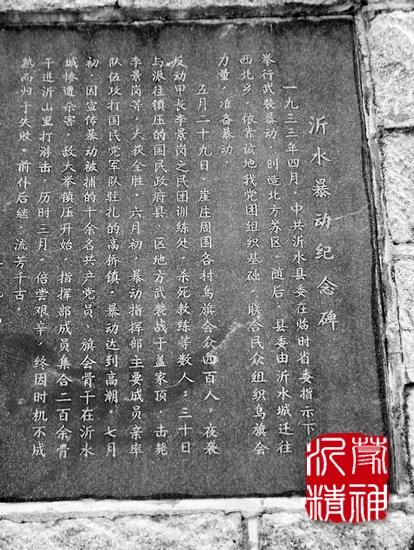 沂水暴动纪念碑
一九三三年四月，中共沂水县委在临时省委指示下
举行武装暴动，创造北方苏区。随后，县委由沂水城迁往
西北乡，依靠该地我党团组织基础，联合民众组织乌旗会
力量，准备暴动。
五月二十九日，崖庄周围各村乌旗会众四百人，夜袭
反动甲长李景岗之民团训练处，杀死教练等数人；三十日
与派往镇压的国民政府县、区地方武装战于盖家顶，击毙
李景岗等，大获全胜。六月初，暴动指挥部主要成员亲率
队伍攻打国民党军队驻扎的高桥镇，暴动达到高潮。七月
初，因宣传暴动被捕的十余名共产党员、旗会骨干在沂水
城惨遭杀害，敌大举镇压开始，指挥部成员集合二百余骨
干进沂山里打游击，历时三月，倍尝艰辛，终因时机不成
熟而归于失败。前仆后继，流芳千古。
沂蒙
精神